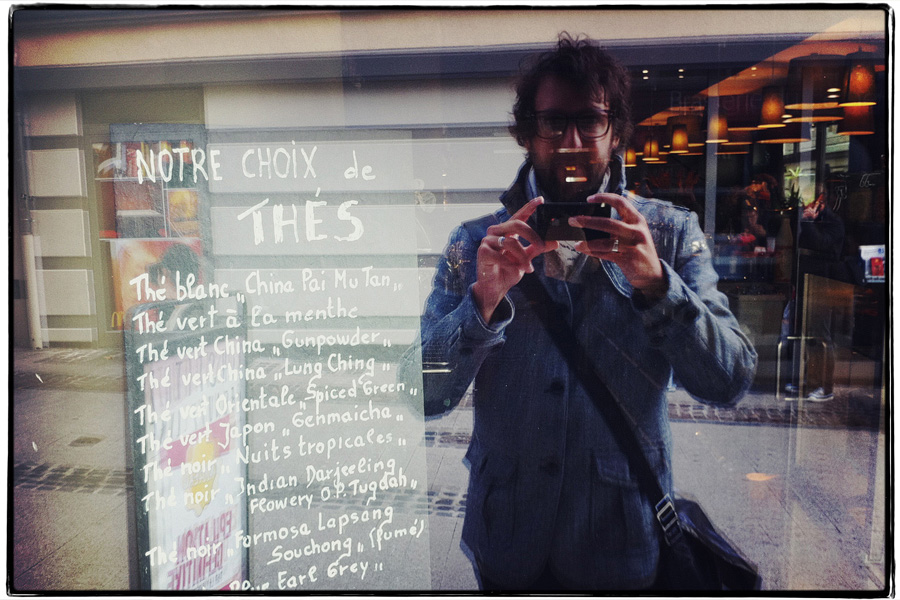 NOTRE CHOIX de
THÉS
Thé blanc „China Pai Mu Tan„
Thé vert à la menthe
Thé vert China „Gunpowder„
Thé vert China „Lung Ching„
Thé vert Orientale „Spiced Green„
Thé vert Japon „Genmaicha„
Thé noir „Nuits tropicales„
Thé noir „Indian Darjeeling
Flowery O.P. Tugdah„
Thé noir „Formosa Lapsang
Souchong„ (fumé)
Earl Grey„